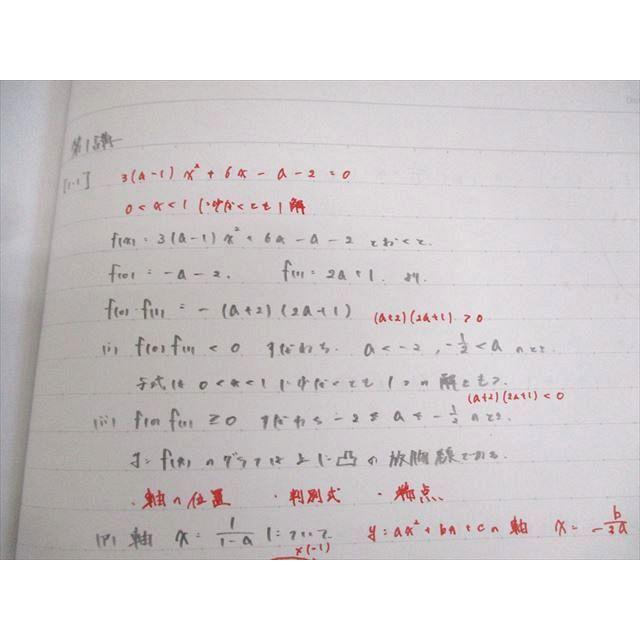 第1講
[1-1] 3(a-1)x²+6x-a-2=0
0<x<1に少なくとも1解
f(x)=3(a-1)x²+6x-a-2とおくと.
f(0)=-a-2. f(1)=2a+1. より.
f(0)・f(1)=-(a+2)(2a+1) (a+2)(2a+1)>0
(i) f(0)f(1)<0 すなわち. a<-2, -1/2<a のとき
与式は0<x<1に少なくとも1つの解をもつ.
(a+2)(2a+1)<0
(ii) f(0)f(1)≧0 すなわち -2≦a≦-1/2 のとき.
y=f(x)のグラフは上に凸の放物線である.
・軸の位置 ・判別式 ・端点
(ア) 軸 x=1/(1-a) について y=ax²+bx+cの軸 x=-b/2a
×(-1)